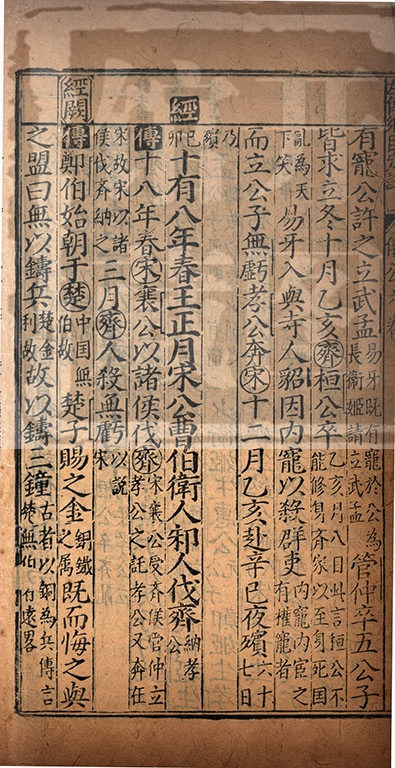 有寵公許之立武孟易牙旣有寵於公為長衛姬請立武孟管仲卒五公子
皆求立冬十月乙亥齊桓公卒乙亥月八日此言桓公不能修身齊家以至身死国
亂為天下笑易牙入與寺人貂因内寵以殺群吏内寵内宦之有權寵者
而立公子無虧孝公奔宋十二月乙亥赴辛巳夜殯六十七日
乃殯
經巳卯十有八年春王正月宋公曹伯衛人邾人伐齊納孝公
傳十八年春宋襄公以諸侯伐齊宋襄公受齊侯管仲立孝公之託孝公又奔在
宋故宋以諸侯伐齊納之三月齊人殺無虧以說宋
經闕傳鄭伯始朝于楚中国無伯故楚子賜之金銅鐵之属既而悔之與
之盟曰無以鑄兵楚金利故故以鑄三鐘古者以銅為兵傳言楚無伯伯遠畧